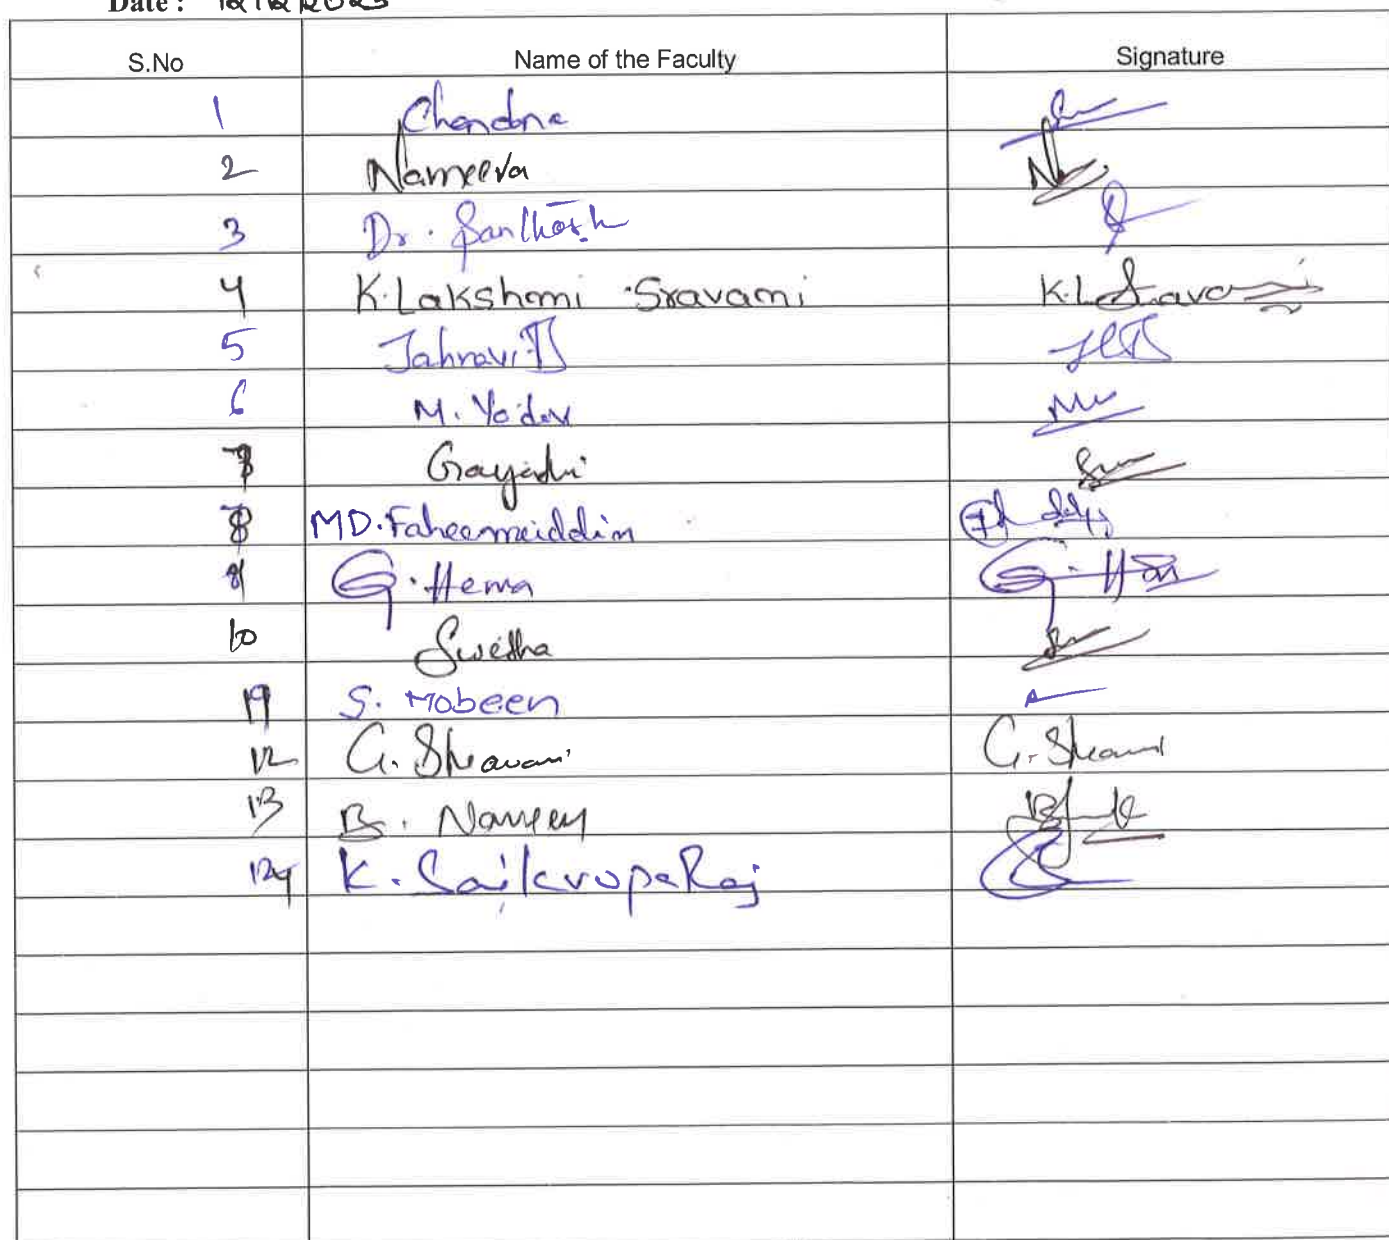 Date : 12/12/2023
S.No Name of the Faculty Signature
1 Chandana
2 Nameera
3 Dr. Santhosh
4 K.Lakshmi Sravami K.L Sravani
5 Jahnavi.B
6 M. Yadav
7 Gayathri
8 MD.Faheemuiddin
9 G.Hema G.Hema
10 Swetha
11 S. Mobeen
12 G. Shravani G. Shravani
13 B. Naveen
14 K. SaikrupaRaj